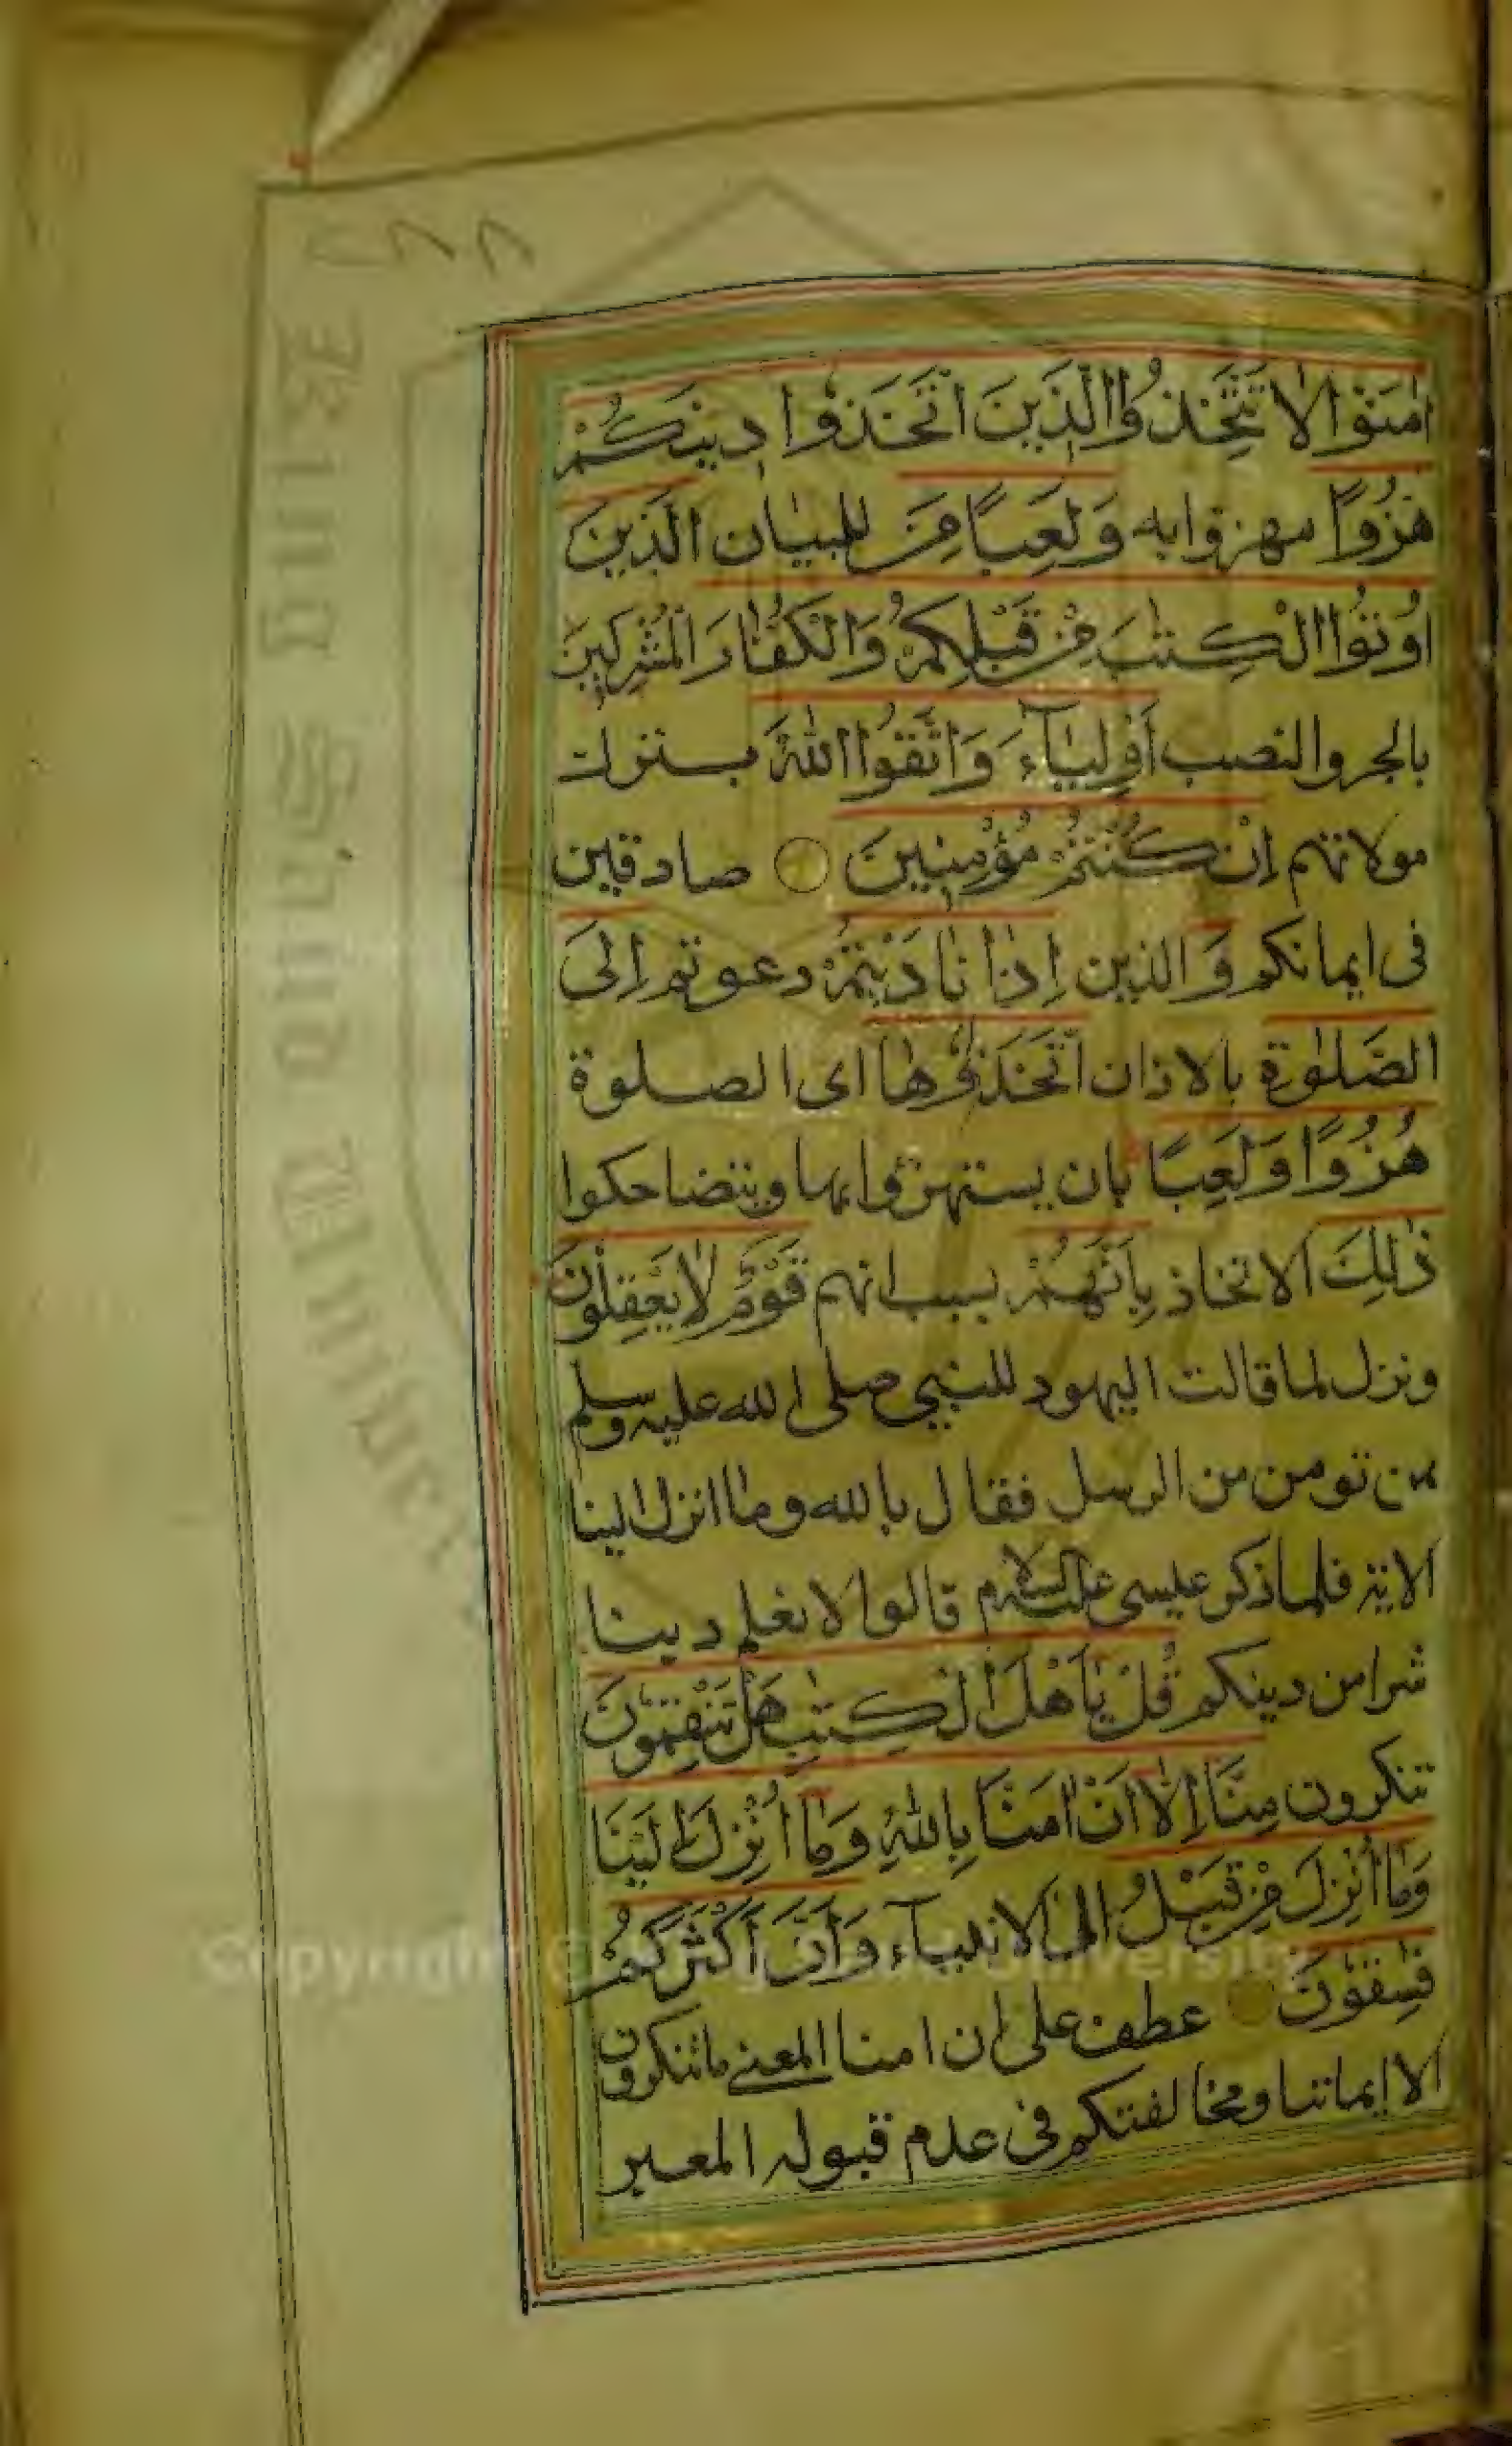 ٢٨٨
اٰمَنُوْا لَا تَتَّخِذُوا الَّذِيْنَ اتَّخَذُوْا دِيْنَكُمْ
هُزُوًا مهزوا به وَلَعِبًا مِنَ للبيان الَّذِيْنَ
اُوْتُوا الْكِتٰبَ مِنْ قَبْلِكُمْ وَالْكُفَّارَ الْمُشْرِكِيْنَ
بالجر والنصب اَوْلِيَآءَ وَاتَّقُوا اللّٰهَ بترك
مولاتهم اِنْ كُنْتُمْ مُؤْمِنِيْنَ صادقين
فى ايمانكم وَ الذين اِذَا نَادَيْتُمْ دعوتم اِلَى
الصَّلٰوةِ بالاذان اتَّخَذُوْهَا اى الصلوة
هُزُوًا وَلَعِبًا بان يستهزؤا بها ويتضاحكوا
ذٰلِكَ الاتخاذ بِاَنَّهُمْ بسبب انهم قَوْمٌ لَا يَعْقِلُوْنَ
ونزل لما قالت اليهود للنبي صلى الله عليه وسلم
بمن تومن من الرسل فقال بالله وما انزل الينا
الاية فلما ذكر عيسى عليه السلام قالوا لا نعلم دينا
شرا من دينكم قُلْ يٰاَهْلَ الْكِتٰبِ هَلْ تَنْقِمُوْنَ
تنكرون مِنَّا اِلَّا اَنْ اٰمَنَّا بِاللّٰهِ وَمَا اُنْزِلَ اِلَيْنَا
وَمَا اُنْزِلَ مِنْ قَبْلُ الى الانبيآء وَاَنَّ اَكْثَرَكُمْ
فٰسِقُوْنَ عطف على ان امنا المعنى ما تنكرون
الا ايماننا ومخالفتكم فى عدم قبوله المعبر
King Saud University
Copyright © King Saud University